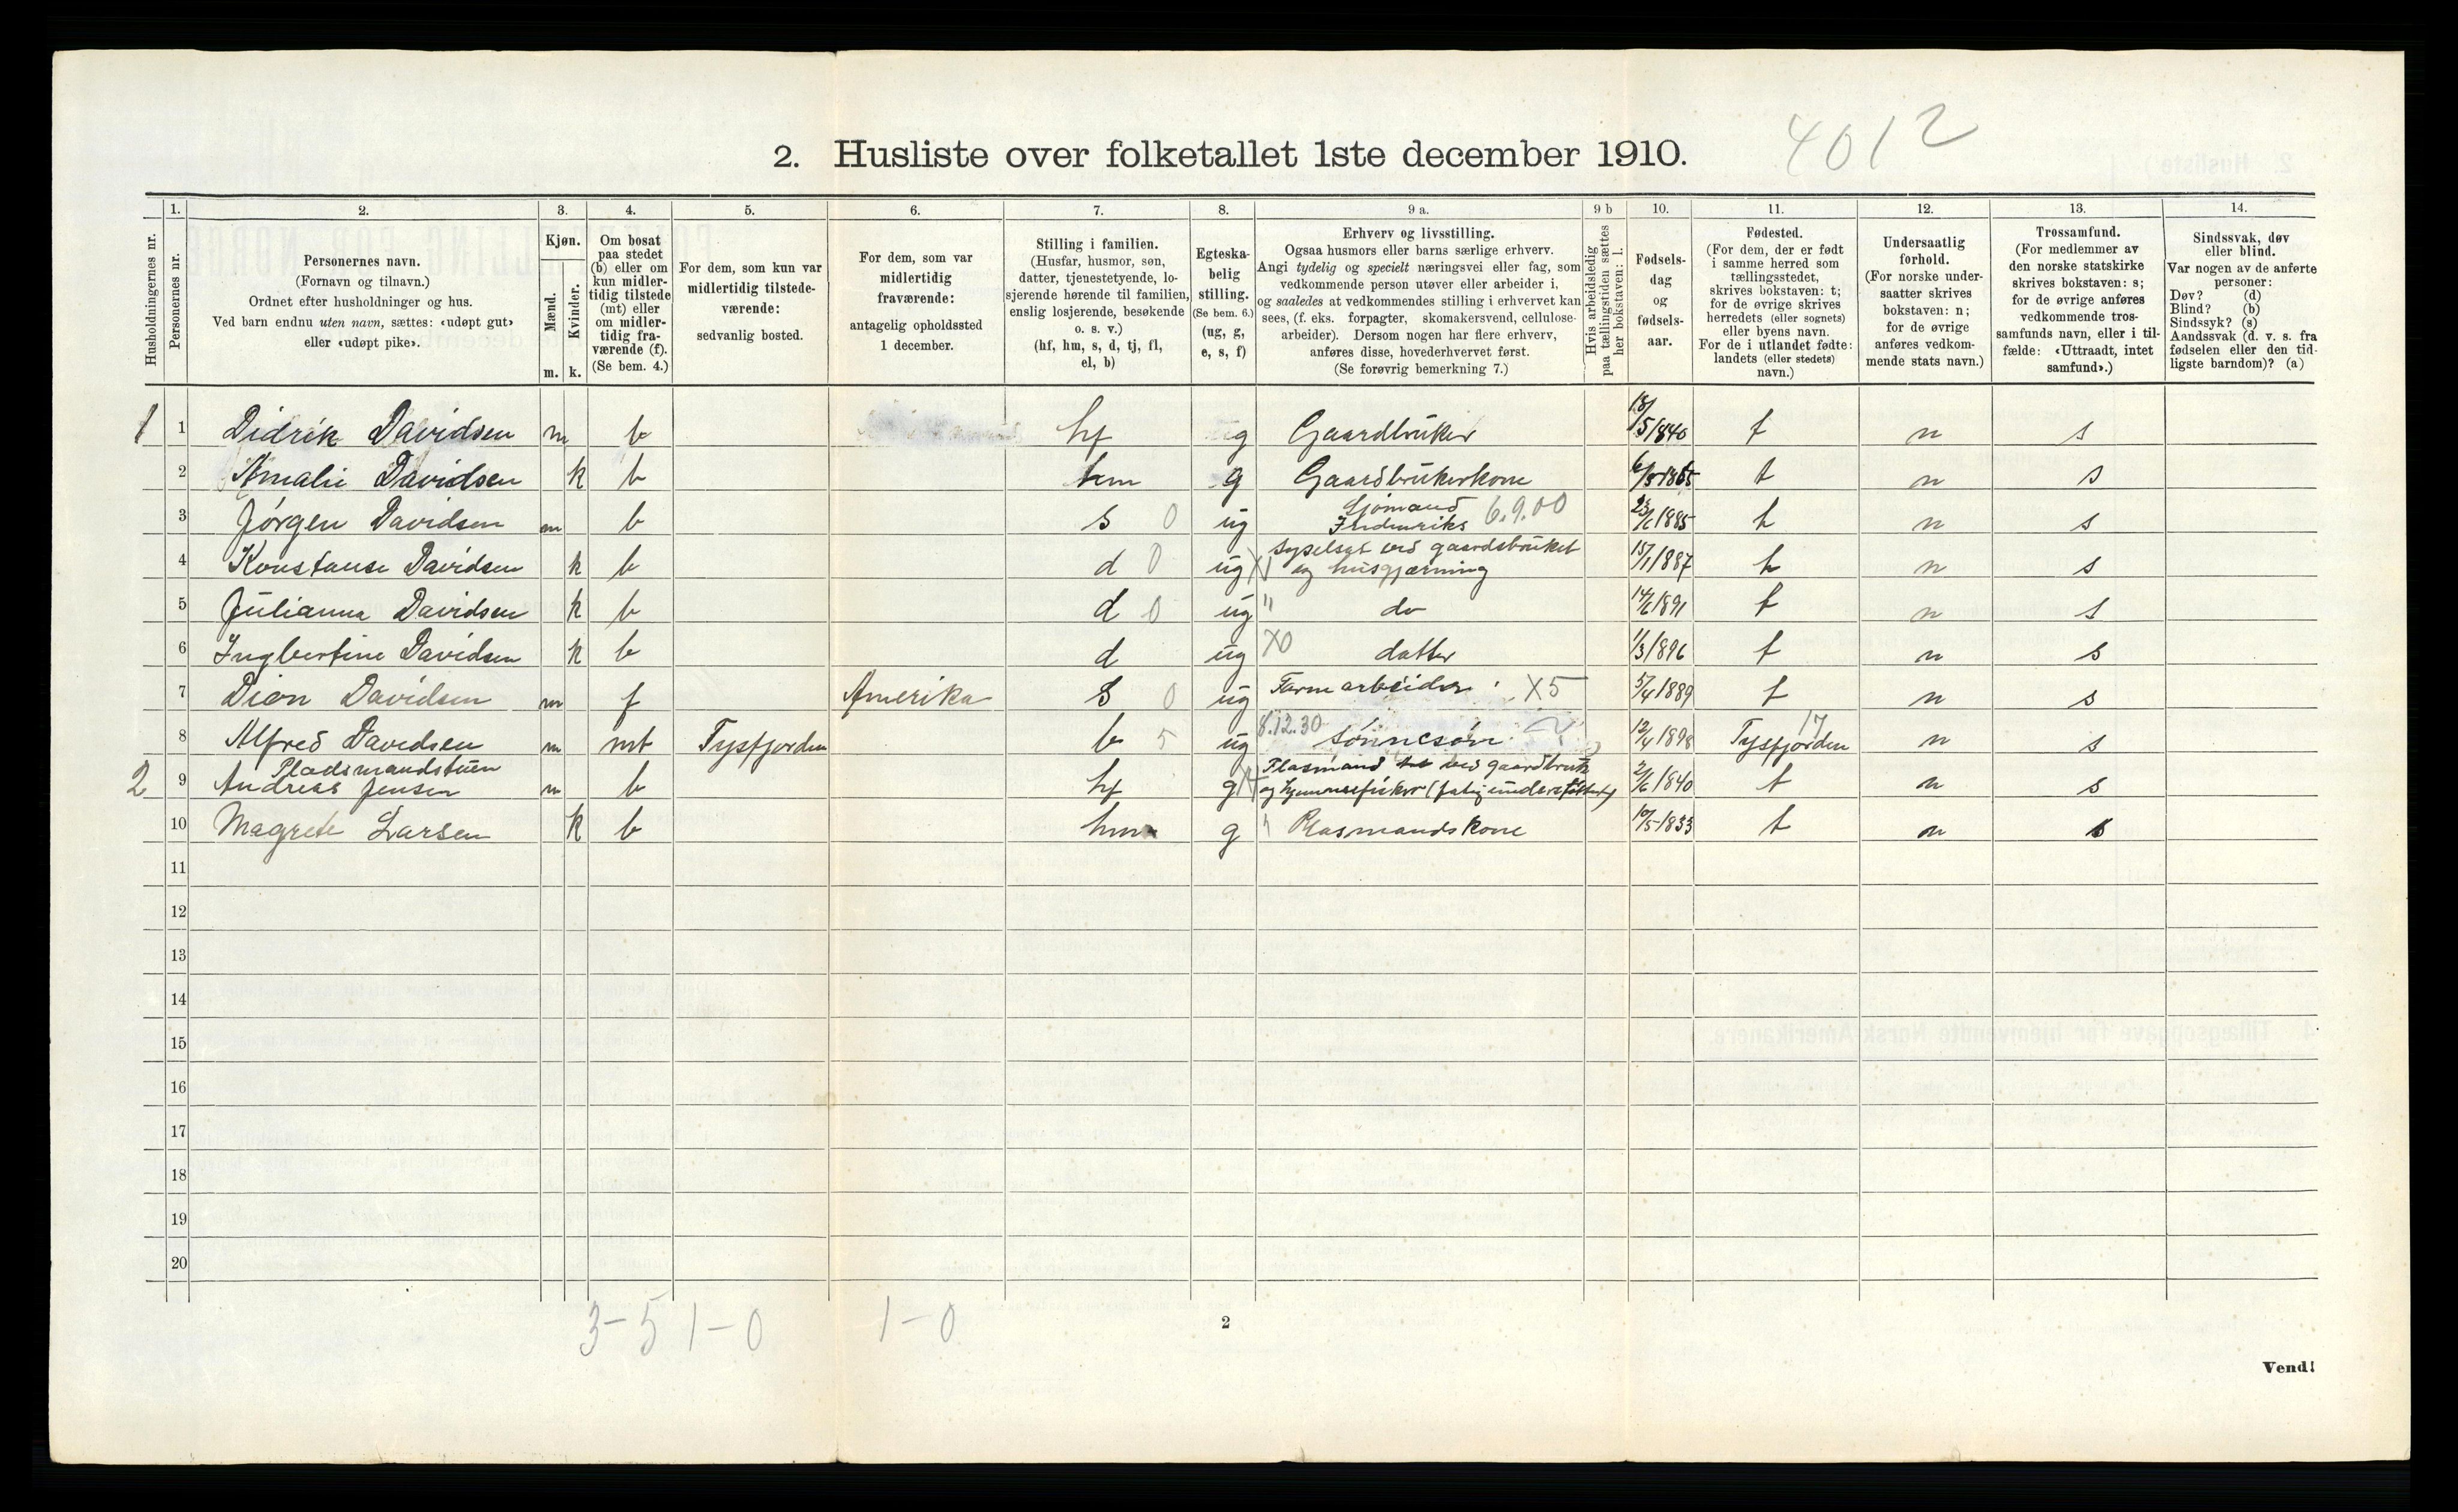 2. Husliste over folketallet 1ste december 1910. 4012
Husholdningernes nr.
1. Personernes nr.
2. Personernes navn. (Fornavn og tilnavn.) Ordnet efter husholdninger og hus. Ved barn endnu uten navn, sættes: «udøpt gut» eller «udøpt pike».
3. Kjøn. Mænd. m. Kvinder. k.
4. Om bosat paa stedet (b) eller om kun midlertidig tilstede (mt) eller om midlertidig fraværende (f). (Se bem. 4.)
5. For dem, som kun var midlertidig tilstedeværende: sedvanlig bosted.
6. For dem, som var midlertidig fraværende: antagelig opholdssted 1 december.
7. Stilling i familien. (Husfar, husmor, søn, datter, tjenestetyende, losjerende hørende til familien, enslig losjerende, besøkende o. s. v.) (hf, hm, s, d, tj, fl, el, b)
8. Egteskabelig stilling. (Se bem. 6.) (ug, g, e, s, f)
9 a. Erhverv og livsstilling. Ogsaa husmors eller barns særlige erhverv. Angi tydelig og specielt næringsvei eller fag, som vedkommende person utøver eller arbeider i, og saaledes at vedkommendes stilling i erhvervet kan sees, (f. eks. forpagter, skomakersvend, cellulosearbeider). Dersom nogen har flere erhverv, anføres disse, hovederhvervet først. (Se forøvrig bemerkning 7.)
9 b Hvis arbeidsledig paa tællingstiden sættes her bokstaven: l.
10. Fødselsdag og fødselsaar.
11. Fødested. (For dem, der er født i samme herred som tællingsstedet, skrives bokstaven: t; for de øvrige skrives herredets (eller sognets) eller byens navn. For de i utlandet fødte: landets (eller stedets) navn.)
12. Undersaatlig forhold. (For norske undersaatter skrives bokstaven: n; for de øvrige anføres vedkommende stats navn.)
13. Trossamfund. (For medlemmer av den norske statskirke skrives bokstaven: s; for de øvrige anføres vedkommende trossamfunds navn, eller i tilfælde: «Uttraadt, intet samfund».)
14. Sindssvak, døv eller blind. Var nogen av de anførte personer: Døv? (d) Blind? (b) Sindssyk? (s) Aandssvak (d. v. s. fra fødselen eller den tidligste barndom)? (a)
1 1 Didrik Davidsen m b hf g Gaardbruker 18/5/840 t n s
2 Amalie Davidsen k b hm g Gaardbrukerkone t n s
3 Jørgen Davidsen m b s 0 ug Sjømand Indenriks 6.9.00 23/6/1885 t n s
4 Konstanse Davidsen k b d 0 ug syselsat ved gaardsbruket og husgjærning 15/1/1887 t n s
5 Julianna Davidsen k b d 0 ug " do 14/6/1891 t n s
6 Ingbertine Davidsen k b d ug X0 datter 1/3/896 t n s
7 Dion Davidsen m f Amerika s 0 ug Farmarbeider X5 5/4/1889 t n s
8 Alfred Davidsen m mt Tysfjorden b 5 ug 8.12.30 sønnesøn 12/4/1898 Tysfjorden 17 n s
Pladsmandstuen
2 9 Andreas Jensen m b hf g Plasmand ved gaardbruk og hjemmefisker 2/6/1840 t n s
10 Magrete Larsen k b hm g " Plasmandskone 10/5/1833 t n s
11
12
13
14
15
16
17
18
19
20
3-5 1-0 1-0
2
Vend!